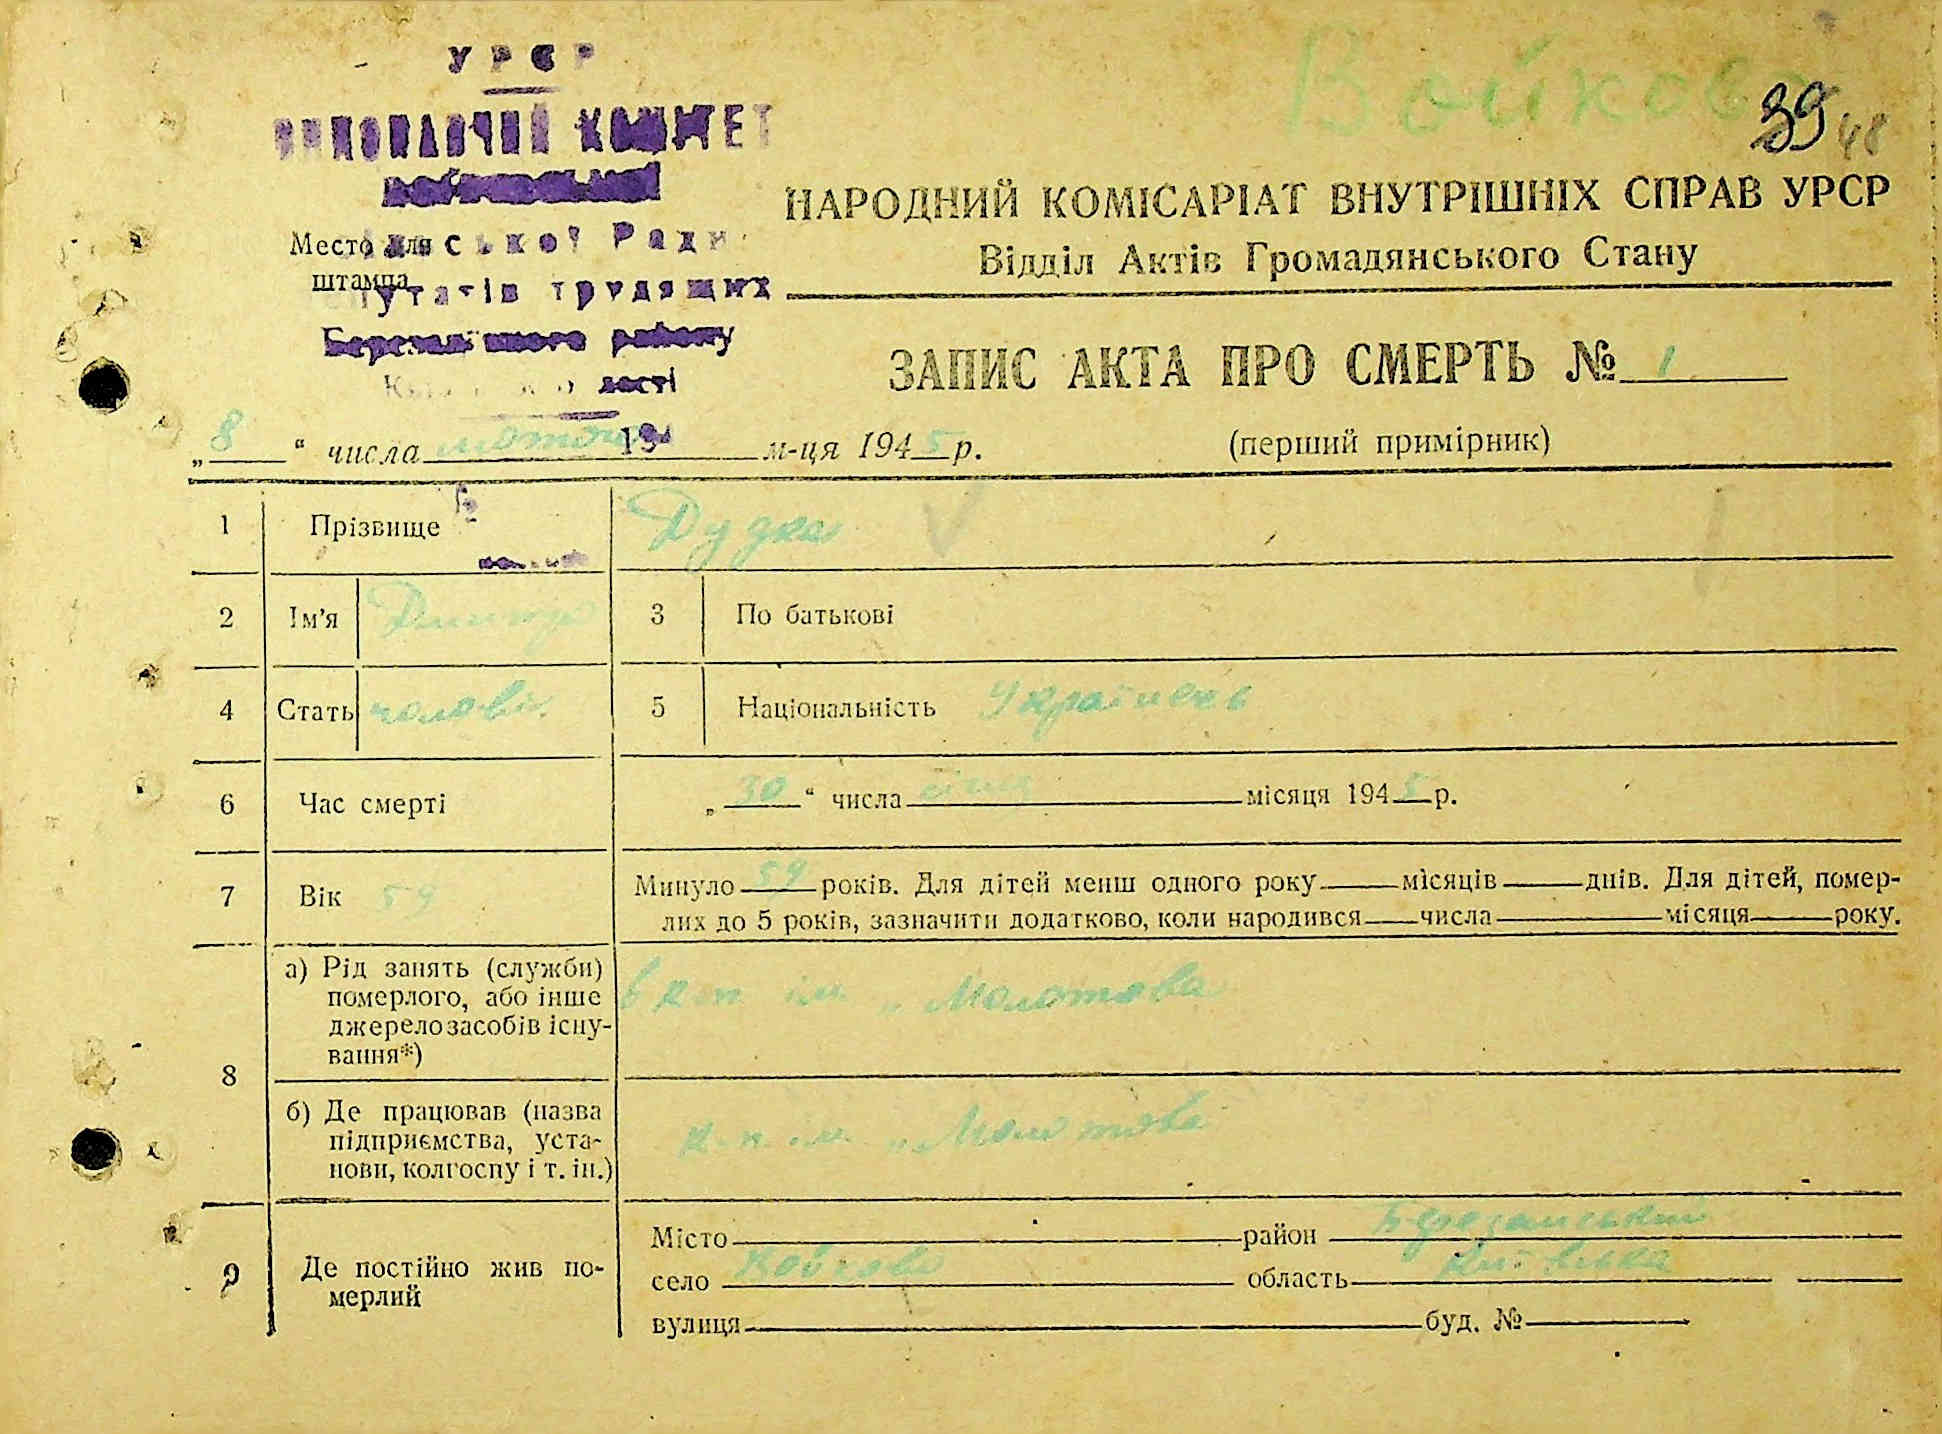 УРСР
Войково
39 48
ВИКОНАВЧИЙ КОМІТЕТ
НАРОДНИЙ КОМІСАРІАТ ВНУТРІШНІХ СПРАВ УРСР
Место для
ської Ради
штампа
утатів трудящих
Відділ Актів Громадянського Стану
Березанського району
ЗАПИС АКТА ПРО СМЕРТЬ № 1
„8“ числа лютого м-ця 1945 р.
(перший примірник)
1 Прізвище Дудка
2 Ім'я Дмитро 3 По батькові
4 Стать чолові. 5 Національність Українець
6 Час смерті „30“ числа січня місяця 1945 р.
7 Вік 59 Минуло 59 років. Для дітей менш одного року місяців днів. Для дітей, помер-
лих до 5 років, зазначити додатково, коли народився числа місяця року.
8 а) Рід занять (служби)
померлого, або інше
джерело засобів існу-
вання*)
в к-п ім. „Молотова
б) Де працював (назва
підприємства, уста-
нови, колгоспу і т. ін.)
к-п. ім. „Молотова
9 Де постійно жив по-
мерлий
Місто район Березанський
село Войково область Київська
вулиця буд. №